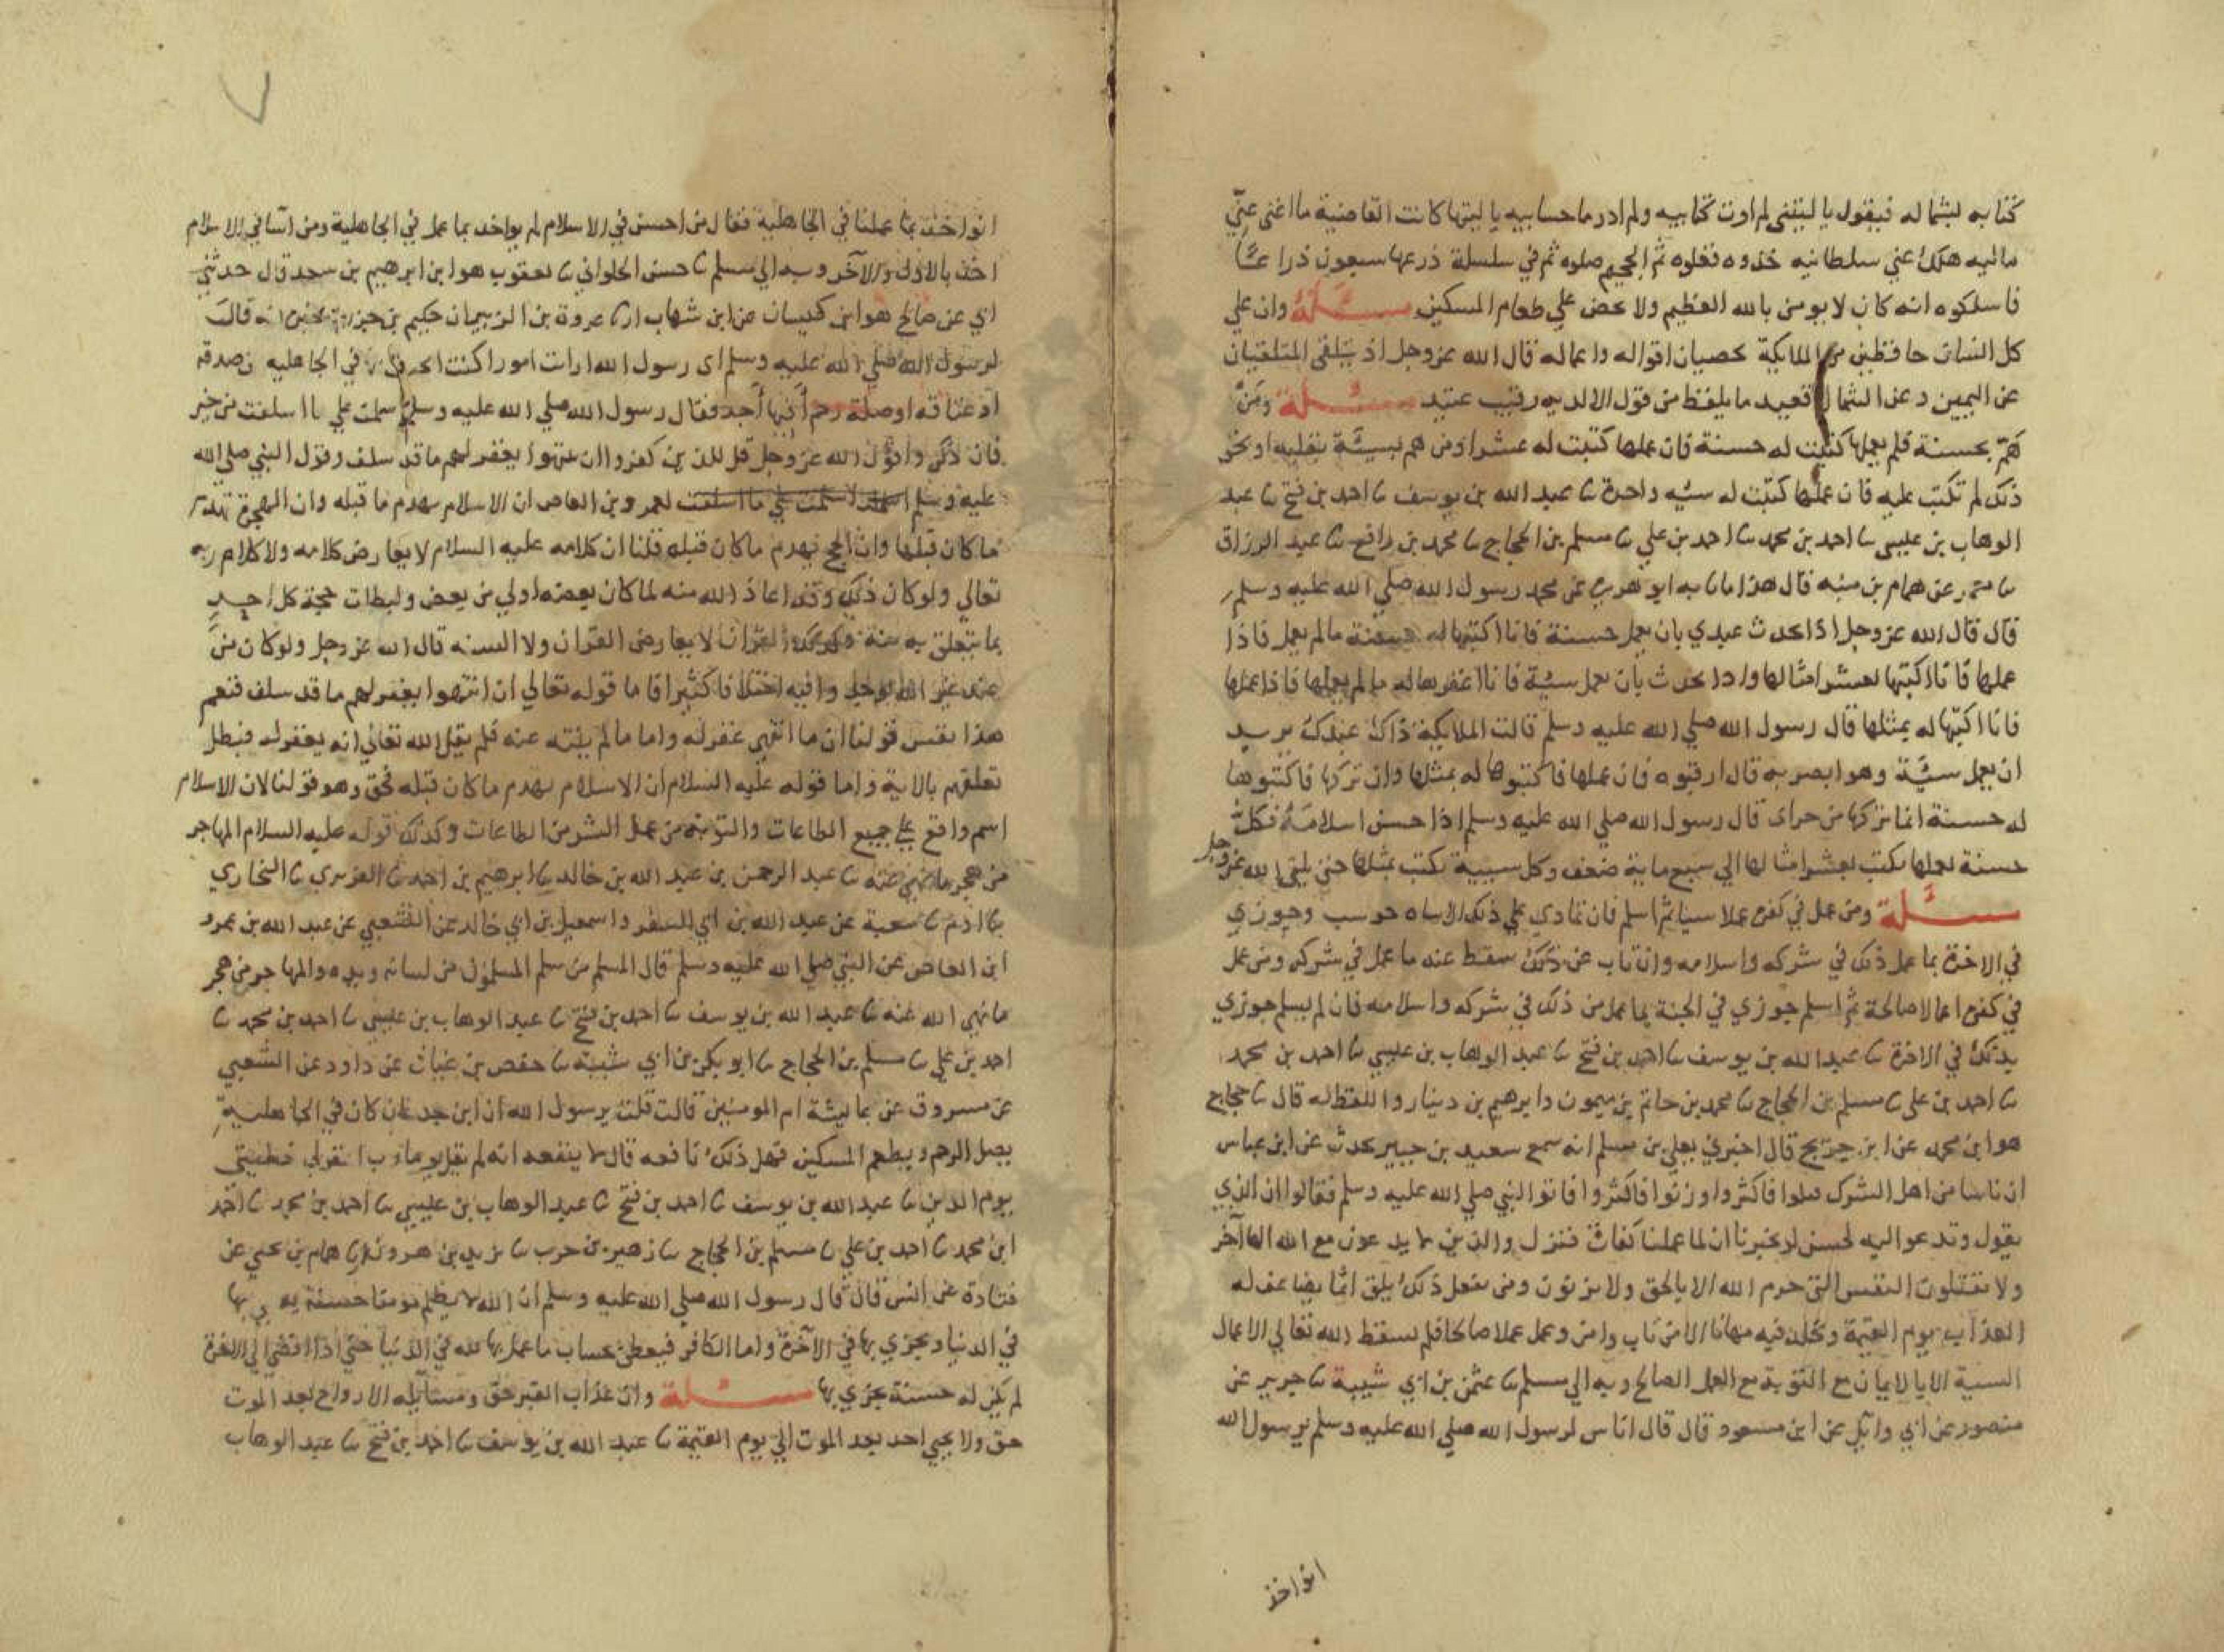 كتابه بشماله فيقول يا ليتني لم اوت كتابيه ولم ادر ما حسابيه يا ليتها كانت القاضية ما اغني عنّي
ماليه هلك عني سلطانيه خذوه فغلوه ثم الجحيم صلوه ثم في سلسلة ذرعها سبعون ذراعًا
فاسلكوه انه كان لا يومن بالله العظيم ولا يحض علي طعام المسكين مسئلة وان علي
كل انسان حافظين من الملايكة يحصيان اقواله واعماله قال الله عز وجل اذ يتلقي المتلقيان
عن اليمين وعن الشمال قعيد ما يلفظ من قول الا لديه رقيب عتيد مسئلة ومَن
هَمّ بحسنة فلم يعملها كتبت له حسنة فان عملها كتبت له عشرا ومن هم بسيئة بقلبه او نحو
ذلك لم تكتب عليه فان عملها كتبت له سيئه واحدة ثنا عبد الله بن يوسف ثنا احمد بن فتح ثنا عبد
الوهاب بن عيسي ثنا احمد بن محمد ثنا احمد بن علي ثنا مسلم بن الحجاج ثنا محمد بن رافع ثنا عبد الرزاق
ثنا معمر عن همام بن منبه قال هذا ما ثنا به ابو هريرة عن محمد رسول الله صلي الله عليه وسلم
قال قال الله عز وجل اذا تحدث عبدي بان يعمل حسنة فانا اكتبها له حسنة ما لم يعمل فاذا
عملها فانا اكتبها بعشر امثالها واذا تحدث بان يعمل سيئة فانا اغفرها له ما لم يعملها فاذا عملها
فانا اكتبها له بمثلها قال رسول الله صلي الله عليه وسلم قالت الملايكة ذاك عبدك يريد
ان يعمل سيئة وهو ابصر به قال ارقبوه فان عملها فاكتبوها له بمثلها وان تركها فاكتبوها
له حسنة انما تركها من جراي قال رسول الله صلي الله عليه وسلم اذا حسن اسلامه فكل
حسنة يعملها تكتب بعشر امثالها الي سبع ماية ضعف وكل سيية تكتب بمثلها حتي يلقي الله عز وجل
مسئلة ومن عمل في كفره عملا سيا ثم اسلم فان تمادي علي ذلك الاساه حوسب وجوزي
في الاخرة بما عمل ذلك في شركه واسلامه وان تاب عن ذلك سقط عنه ما عمل في شركه ومن عمل
في كفره اعمالا صالحة ثم اسلم جوزي في الجنة بما عمل من ذلك في شركه واسلامه فان لم يسلم جوزي
بذلك في الاخرة ثنا عبد الله بن يوسف ثنا احمد بن فتح ثنا عبد الوهاب بن عيسي ثنا احمد بن محمد
ثنا احمد بن علي ثنا مسلم بن الحجاج ثنا محمد بن حاتم بن ميمون وابرهيم بن دينار واللفظ له قال ثنا حجاج
هو ابن محمد عن ابن جريج قال اخبرني يعلي بن مسلم انه سمع سعيد بن جبير يحدث عن ابن عباس
ان ناسا من اهل الشرك قتلوا فاكثروا وزنوا فاكثروا فاتوا النبي صلي الله عليه وسلم فقالوا ان الذي
يقول وتدعو اليه لحسن لو تخبرنا ان لما عملنا كفارة فنزل والذين لا يدعون مع الله الها آخر
ولا يقتلون النفس التي حرم الله الا بالحق ولا يزنون ومن يفعل ذلك يلق اثما يضاعف له
العذاب يوم القيمة ويخلد فيه مهانا الا من تاب وامن وعمل عملا صالحا فلم يسقط الله تعالي الاعمال
السيية الا بالايمان مع التوبة مع العمل الصالح وبه الي مسلم ثنا عثمن بن ابي شيبة ثنا جرير عن
منصور عن ابي وايل عن ابن مسعود قال قال اناس لرسول الله صلي الله عليه وسلم يرسول الله
انواخذ
انواخذ بما عملنا في الجاهلية فقال من احسن في الاسلام لم يواخذ بما عمل في الجاهلية ومن اسآ في الاسلام
اخذ بالاول والآخر وبه الي مسلم ثنا حسن الحلواني ثنا يعقوب هو ابن ابرهيم بن سعد قال حدثني
ابي عن صالح هو ابن كيسان عن ابن شهاب انا عروة بن الزبير ان حكيم بن حزام اخبره انه قال
لرسول الله صلي الله عليه وسلم اي رسول الله ارات امورا كنت اتحنث بها في الجاهليه من صدقه
او عتاقه او صلة رحم أفيها أجر فقال رسول الله صلي الله عليه وسلم اسلمت علي ما اسلفت من خير
فان ذكروا قول الله عز وجل قل للذين كفروا ان ينتهوا يغفر لهم ما قد سلف وقول النبي صلي الله
عليه وسلم لعمرو بن العاص ان الاسلام يهدم ما قبله وان الهجرة تهدم
ما كان قبلها وان الحج يهدم ما كان قبله قلنا ان كلامه عليه السلام لا يعارض كلامه ولا كلام ربه
تعالي ولو كان ذلك وقد اعاذ الله منه لما كان بعضه اولي من بعض ولبطلت حجة كل احد
بما يتعلق به منه القرآن لا يعارض القرآن ولا السنه قال الله عز وجل ولو كان من
عند غير الله لوجدوا فيه اختلافا كثيرا فاما قوله تعالي ان انتهوا يغفر لهم ما قد سلف فنعم
هذا نفس قولنا ان ما انتهي غفر له واما ما لم ينته عنه فلم يقل الله تعالي انه يغفر له فبطل
تعلقهم بالاية واما قوله عليه السلام ان الاسلام يهدم ما كان قبله فحق وهو قولنا لان الاسلام
اسم واقع علي جميع الطاعات والتوبة من عمل الشر من الطاعات وكذلك قوله عليه السلام المهاجر
من هجر ما نهي عنه ثنا عبد الرحمن بن عبد الله بن خالد ثنا ابرهيم بن احمد ثنا الفربري ثنا البخاري
ثنا ادم ثنا شعبة عن عبد الله بن ابي السفر واسمعيل بن ابي خالد عن الشعبي عن عبد الله بن عمرو
ابن العاص عن النبي صلي الله عليه وسلم قال المسلم من سلم المسلمون من لسانه ويده والمهاجر من هجر
ما نهي الله عنه ثنا عبد الله بن يوسف ثنا احمد بن فتح ثنا عبد الوهاب بن عيسي ثنا احمد بن محمد ثنا
احمد بن علي ثنا مسلم بن الحجاج ثنا ابو بكر بن ابي شيبة ثنا حفص بن غياث عن داود عن الشعبي
عن مسروق عن عايشة ام المومنين قالت قلت يرسول الله ان ابن جدعان كان في الجاهلية
يصل الرحم ويطعم المسكين فهل ذلك نافعه قال لا ينفعه انه لم يقل يوما رب اغفر لي خطيتي
يوم الدين ثنا عبد الله بن يوسف ثنا احمد بن فتح ثنا عبد الوهاب بن عيسي ثنا احمد بن محمد ثنا احمد
ابن محمد ثنا احمد بن علي ثنا مسلم بن الحجاج ثنا زهير بن حرب ثنا يزيد بن هرون انا همام بن يحيي عن
قتادة عن انس قال قال رسول الله صلي الله عليه وسلم ان الله لا يظلم مومنا حسنة بها
في الدنيا ويجزي بها في الآخرة واما الكافر فيعطي بحساب ما عمل بها لله في الدنيا حتي اذا افضي الي الاخرة
لم يكن له حسنة يجزي بها مسئلة وان عذاب القبر حق ومسايله الارواح بعد الموت
حق ولا يحيي احد بعد الموت الي يوم القيمة ثنا عبد الله بن يوسف ثنا احمد بن فتح ثنا عبد الوهاب